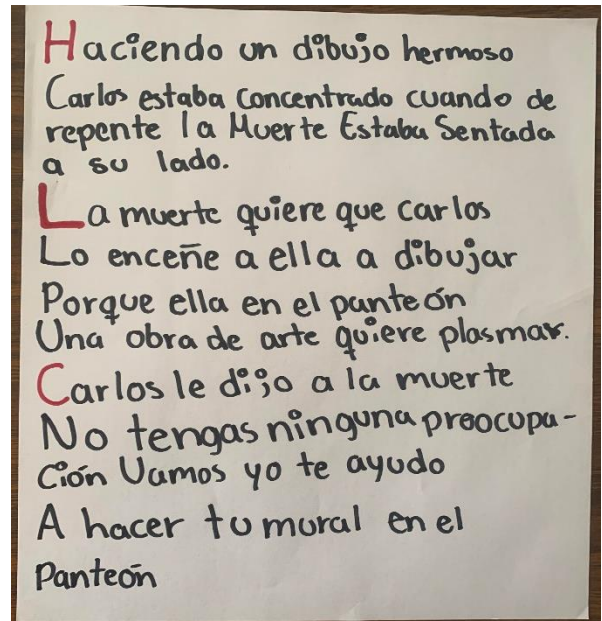 Haciendo un dibujo hermoso
Carlos estaba Concentrado cuando de
repente la Muerte Estaba Sentada
a su lado.
La muerte quiere que Carlos
Lo enceñe a ella a dibujar
Porque ella en el panteón
Una obra de arte quiere plasmar.
Carlos le dijo a la muerte
No tengas ninguna preocupa-
Ción Vamos yo te ayudo
A hacer tu mural en el
Panteón